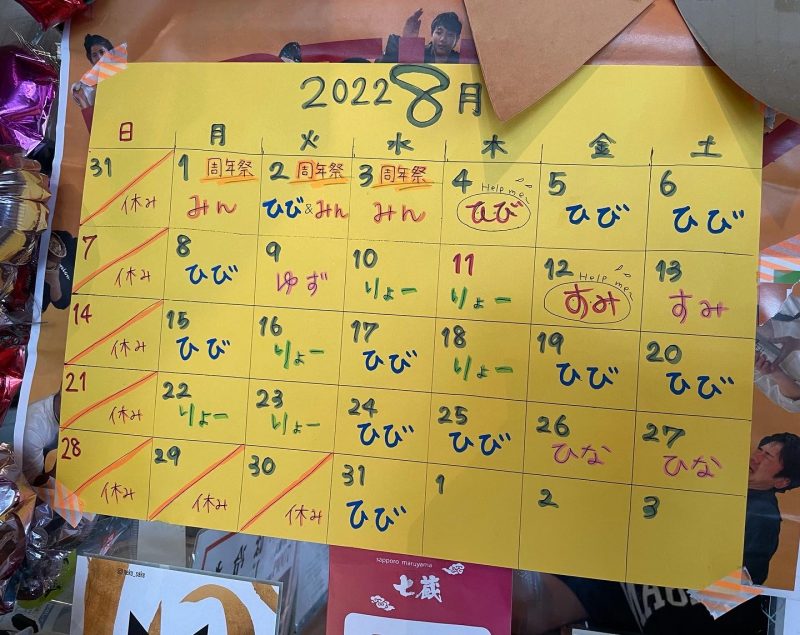 2022 8月
日 月 火 水 木 金 土
31 休み
1 周年祭 みん
2 周年祭 ひび&みん
3 周年祭 みん
4 Help me ひび
5 ひび
6 ひび
7 休み
8 ひび
9 ゆず
10 りょー
11 りょー
12 Help me すみ
13 すみ
14 休み
15 ひび
16 りょー
17 ひび
18 りょー
19 ひび
20 ひび
21 休み
22 りょー
23 りょー
24 ひび
25 ひび
26 ひな
27 ひな
28 休み
29 休み
30 休み
31 ひび
1
2
3
sapporo maruyama
七蔵